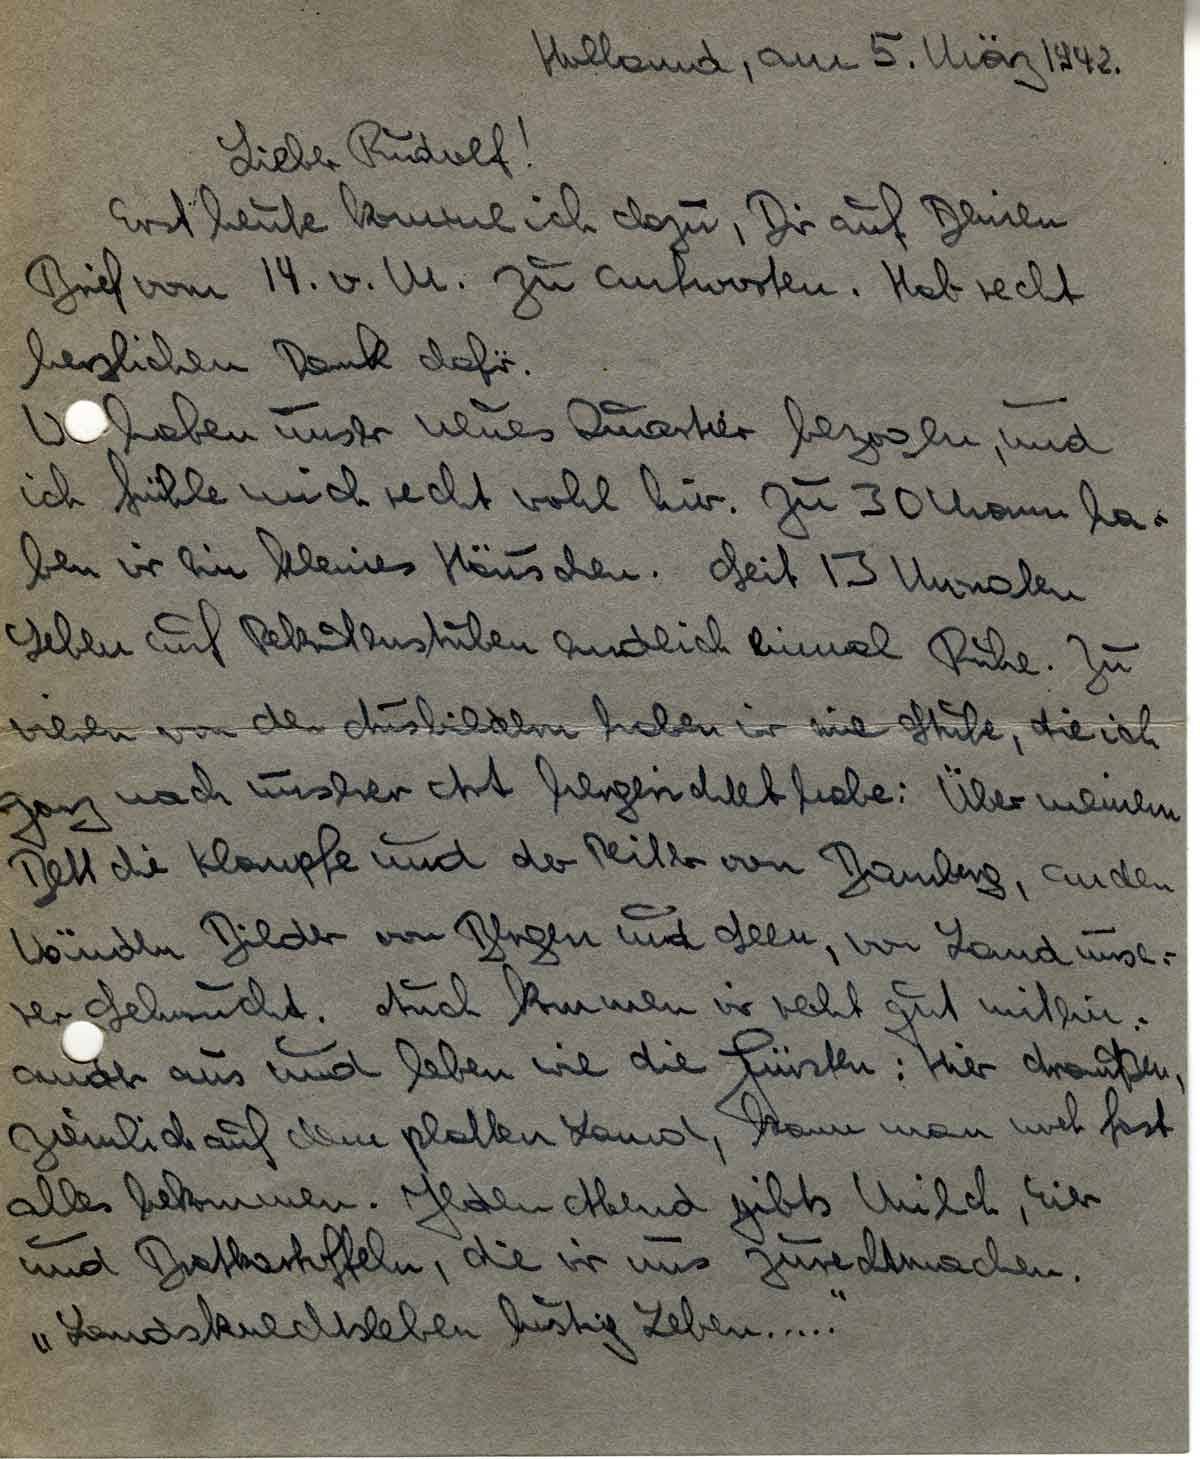 Holland, am 5. März 1942.
Lieber Rudolf!
Erst heute komme ich dazu, Dir auf Deinen
Brief vom 14. v. M. zu antworten. Hab recht
herzlichen Dank dafür.
W haben unser neues Quartier bezogen, und
ich fühle mich recht wohl hier. Zu 30 Mann ha-
ben wir ein kleines Häuschen. Seit 13 Monaten
Leben auf Rekrutenstuben endlich einmal Ruhe. Zu
vieren von den Ausbildern haben wir eine Stube, die ich
ganz nach unserer Art hergerichtet habe: Über meinem
Bett die Klampfe und der Reiter von Bamberg, an den
Wänden Bilder von Bergen und Seen, vom Land unse-
rer Sehnsucht. Auch kommen wir recht gut mitein-
ander aus und leben wie die Fürsten: Hier draußen,
ziemlich auf dem platten Land, kann man noch fast
alles bekommen. Jeden Abend gibts Milch, Eier
und Bratkartoffeln, die wir uns zurechtmachen.
„Landsknechtsleben lustig Leben....."